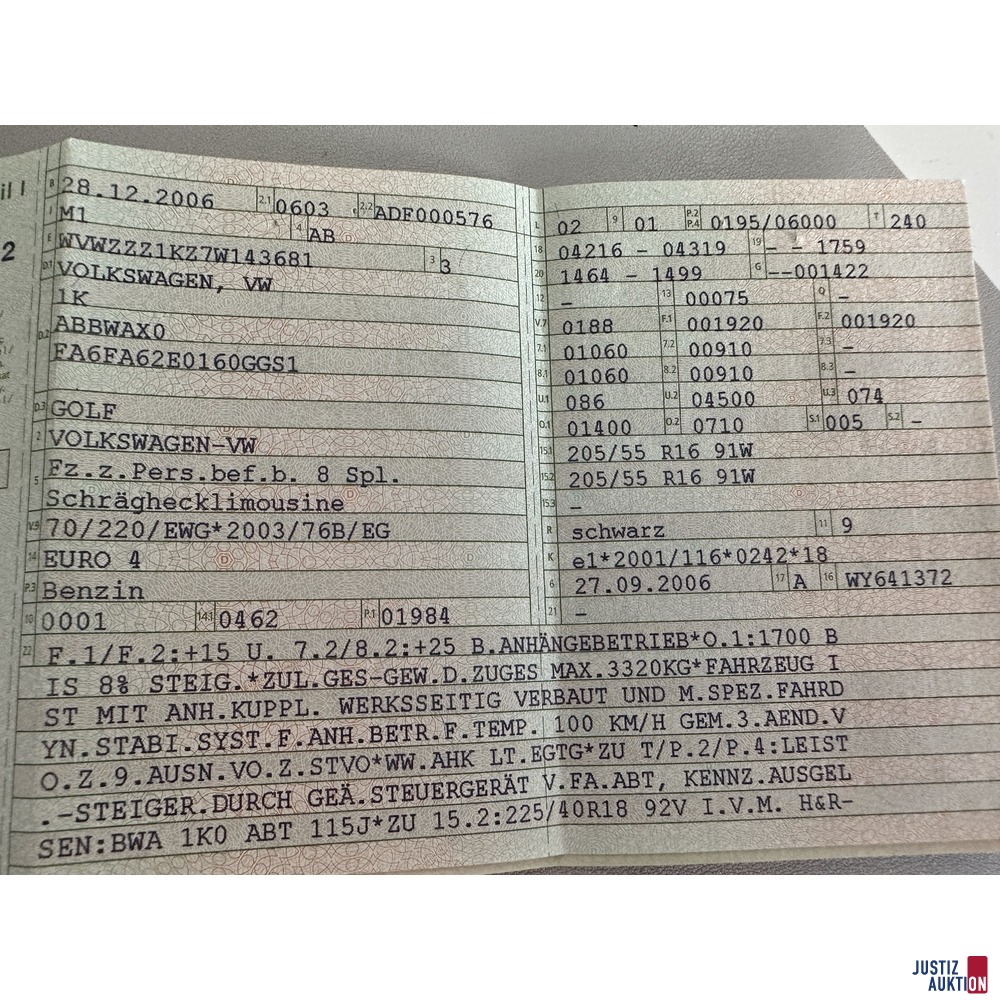 il I
2
B 28.12.2006 2.1 0603 2.2 ADF000576
J M1 4 AB
E WVWZZZ1KZ7W143681 3 3
D.1 VOLKSWAGEN, VW
1K
D.2 ABBWAX0
FA6FA62E0160GGS1
D.3 GOLF
2 VOLKSWAGEN-VW
5 Fz.z.Pers.bef.b. 8 Spl.
Schräghecklimousine
V.9 70/220/EWG*2003/76B/EG
14 EURO 4
P.3 Benzin
10 0001 14.1 0462 P.1 01984
L 02 9 01 P.2 P.4 0195/06000 T 240
18 04216 - 04319 19 - - 1759
20 1464 - 1499 G --001422
12 - 13 00075 Q -
V.7 0188 F.1 001920 F.2 001920
7.1 01060 7.2 00910 7.3 -
8.1 01060 8.2 00910 8.3 -
U.1 086 U.2 04500 U.3 074
O.1 01400 O.2 0710 S.1 005 S.2 -
15.1 205/55 R16 91W
15.2 205/55 R16 91W
15.3 -
R schwarz 11 9
K e1*2001/116*0242*18
6 27.09.2006 17 A 16 WY641372
21 -
22 F.1/F.2:+15 U. 7.2/8.2:+25 B.ANHÄNGEBETRIEB*O.1:1700 B
IS 8% STEIG.*ZUL.GES-GEW.D.ZUGES MAX.3320KG*FAHRZEUG I
ST MIT ANH.KUPPL. WERKSSEITIG VERBAUT UND M.SPEZ.FAHRD
YN.STABI.SYST.F.ANH.BETR.F.TEMP. 100 KM/H GEM.3.AEND.V
O.Z.9.AUSN.VO.Z.STVO*WW.AHK LT.EGTG*ZU T/P.2/P.4:LEIST
.-STEIGER.DURCH GEÄ.STEUERGERÄT V.FA.ABT, KENNZ.AUSGEL
SEN:BWA 1K0 ABT 115J*ZU 15.2:225/40R18 92V I.V.M. H&R-
JUSTIZ
AUKTION